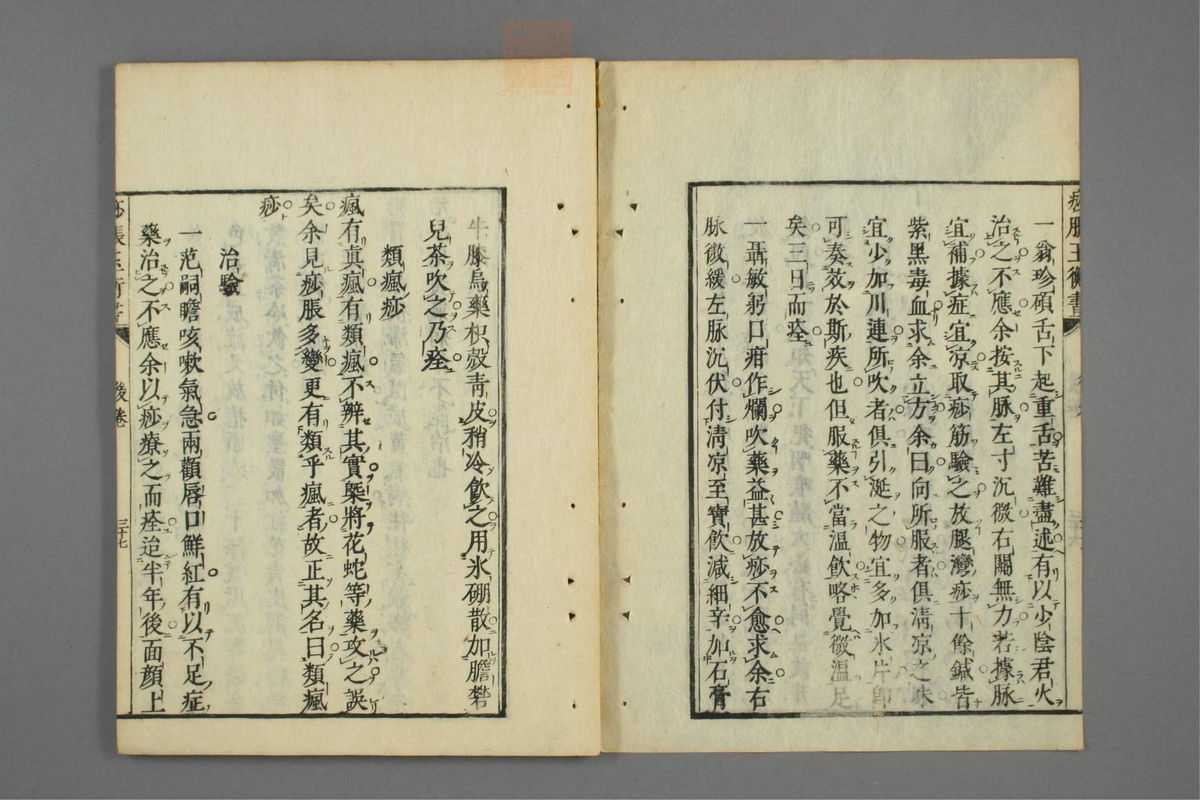 一翁珍碩舌下起重舌苦難盡述有以少陰君火
治之不應余按其脉左寸沉微右關無力若據脉
宜補據症宜凉取痧筋驗之放腿灣痧十餘鍼皆
紫黑毒血求余立方余曰向所服者俱淸凉之味
宜少加川連所吹者俱引涎之物宜多加氷片卽
可奏效於斯疾也但服藥不當温飮略覺微温足
矣三日而痊
一聶敏躬口疳作爛吹藥益甚放痧不愈求余右
脉微緩左脉沉伏付淸凉至寳飮減細辛加石膏
牛膝烏藥枳殼靑皮稍冷飮之用氷硼散加膽礬
兒茶吹之乃痊
類瘋痧
瘋有真瘋有類瘋不辨其實槩將花蛇等藥攻之誤
矣余見痧脹多變更有類乎瘋者故正其名曰類瘋
痧
治驗
一范嗣瞻咳嗽氣急兩顴唇口鮮紅有以不足症
藥治之不應余以痧療之而痊迨半年後面顔上
痧脹玉衡書
後卷
三十七